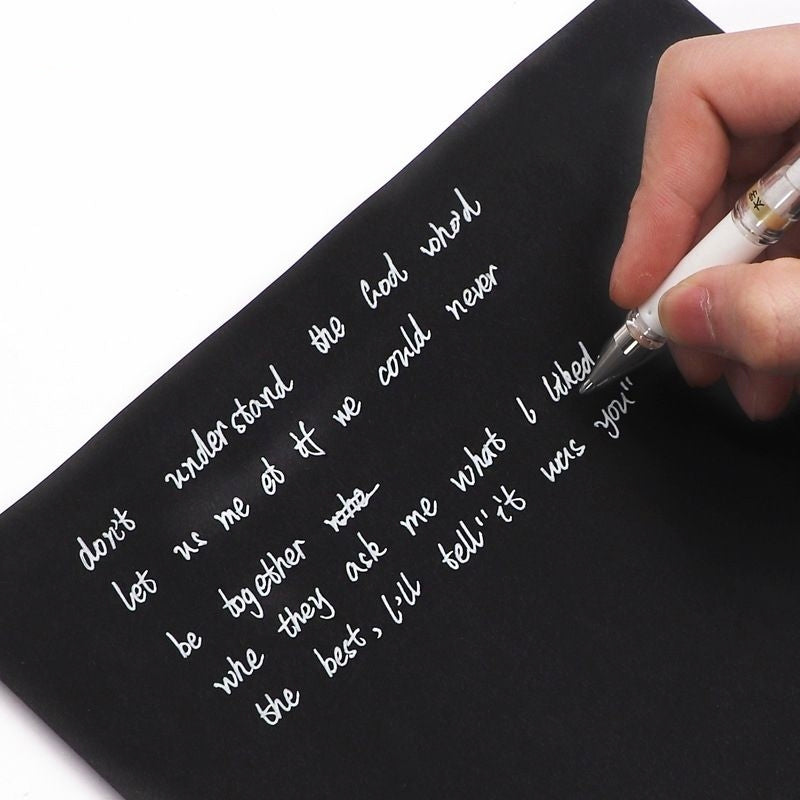 don't understand the God who'd
let us me et if we could never
be together
whe they ask me what I liked
the best, I'll tell "it was you"